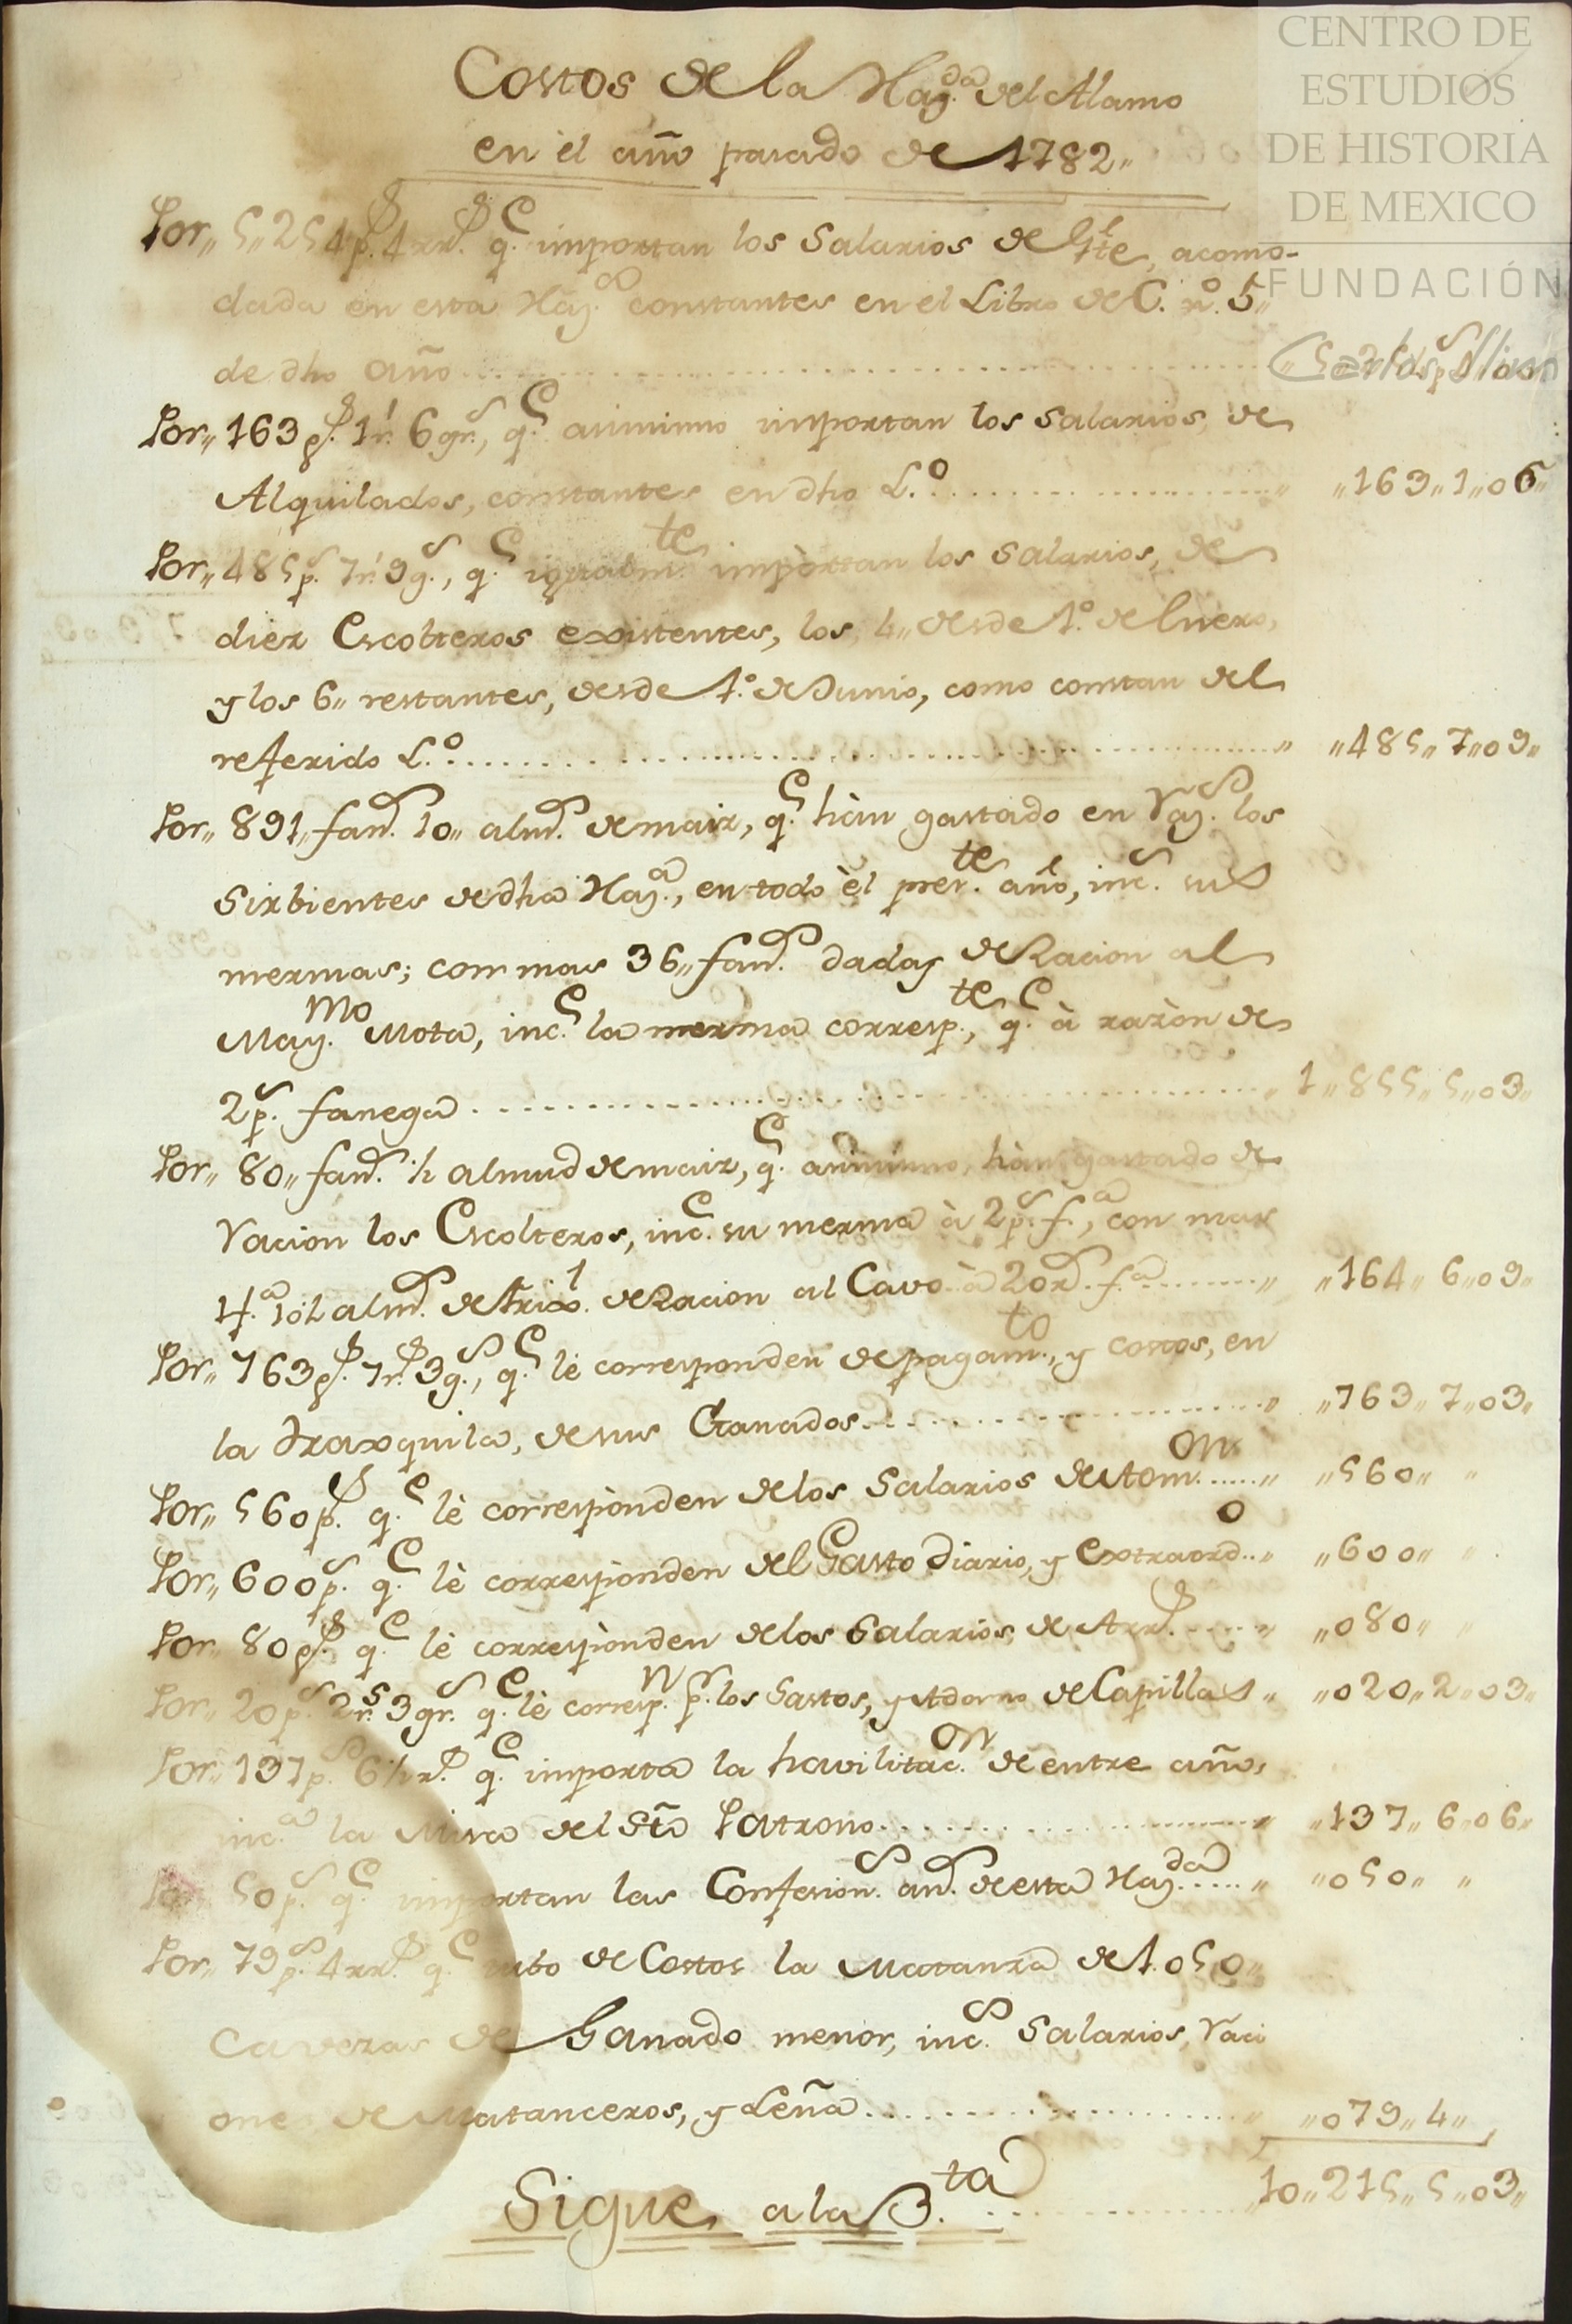 CENTRO DE
ESTUDIOS
DE HISTORIA
DE MEXICO
FUNDACIÓN
Costos de la Haz.da del Alamo
en èl año pasado de 1782„
Por„ 5„254 p.s 4 rr.s q.e importan los Salarios de Gte, acomo-
dada en esta Haz.da constantes en el Libro de C. no. 5„
de dho año
Por„ 163 p.s 1 r.l 6 gr.s, q.e asimismo importan los Salarios, de
Alquilados, constantes en dho L.o „163„1„06„
Por„ 485 p.s 7 r.s 9 g.s, q.e igualm.te impòrtan los Salarios, de
diez Escolteros existentes, los 4„ desde 1.o de Enero,
y los 6„ restantes, desde 1.o de Junio, como constan del
referido L.o „485„7„09„
Por„ 891„ fan.s 10„ alm.s de maiz, q.e hàn gastado en Raz.s los
Sirbientes de dha Haz.a, en todo èl pres.te año, inc.s sus
mermas; con mas 36„ fan.s dadas de Racion al
May.mo Mota, inc.e la merma corresp.te, q.e à razòn de
2 p.s fanega 1„855„5„03„
Por„ 80„ fan.s ½ almud de maiz, q.e asimismo, hàn gastado de
racion los Escolteros, inc.e su merma à 2 p.s f.a, con mas
4 f.a 10½ alm.s de trixo de Racion al Cavo à 20 r.s f.a „164„6„09„
Por„ 763 p.s 7 r.s 3 g.s, q.e lè corresponden de pagam.to, y costos, en
la Traxquila, de sus Ganados „763„7„03„
Por„ 560 p.s q.e lè correspònden de los Salarios de Adm.on „560„ „
Por„ 600 p.s q.e lè correspònden del Gasto Diario, y Extraord.o „600„ „
Por„ 80 p.s q.e lè correspònden de los Salarios, de Arr.s „080„ „
Por„ 20 p.s 2 r.s 3 gr.s q.e lè corresp.n p.r los Gastos, y Adorno de Capilla „020„2„03„
Por„ 137 p.s 6½ r.s q.e importa la havilitac.on de entre año,
inc.a la Misa del Sto Patrono „137„6„06„
Por 50 p.s q.e importan las Confesion.s an.s de esta Haz.da „050„ „
Por„ 79 p.s 4 rr.s q.e tubo de Costos la Matanza de 1.050„
Cavezas de Ganado menor, inc.s Salarios, Raci
ones de Matanceros, y Leña „079„4„
Sigue a la B.ta 10„215„5„03„